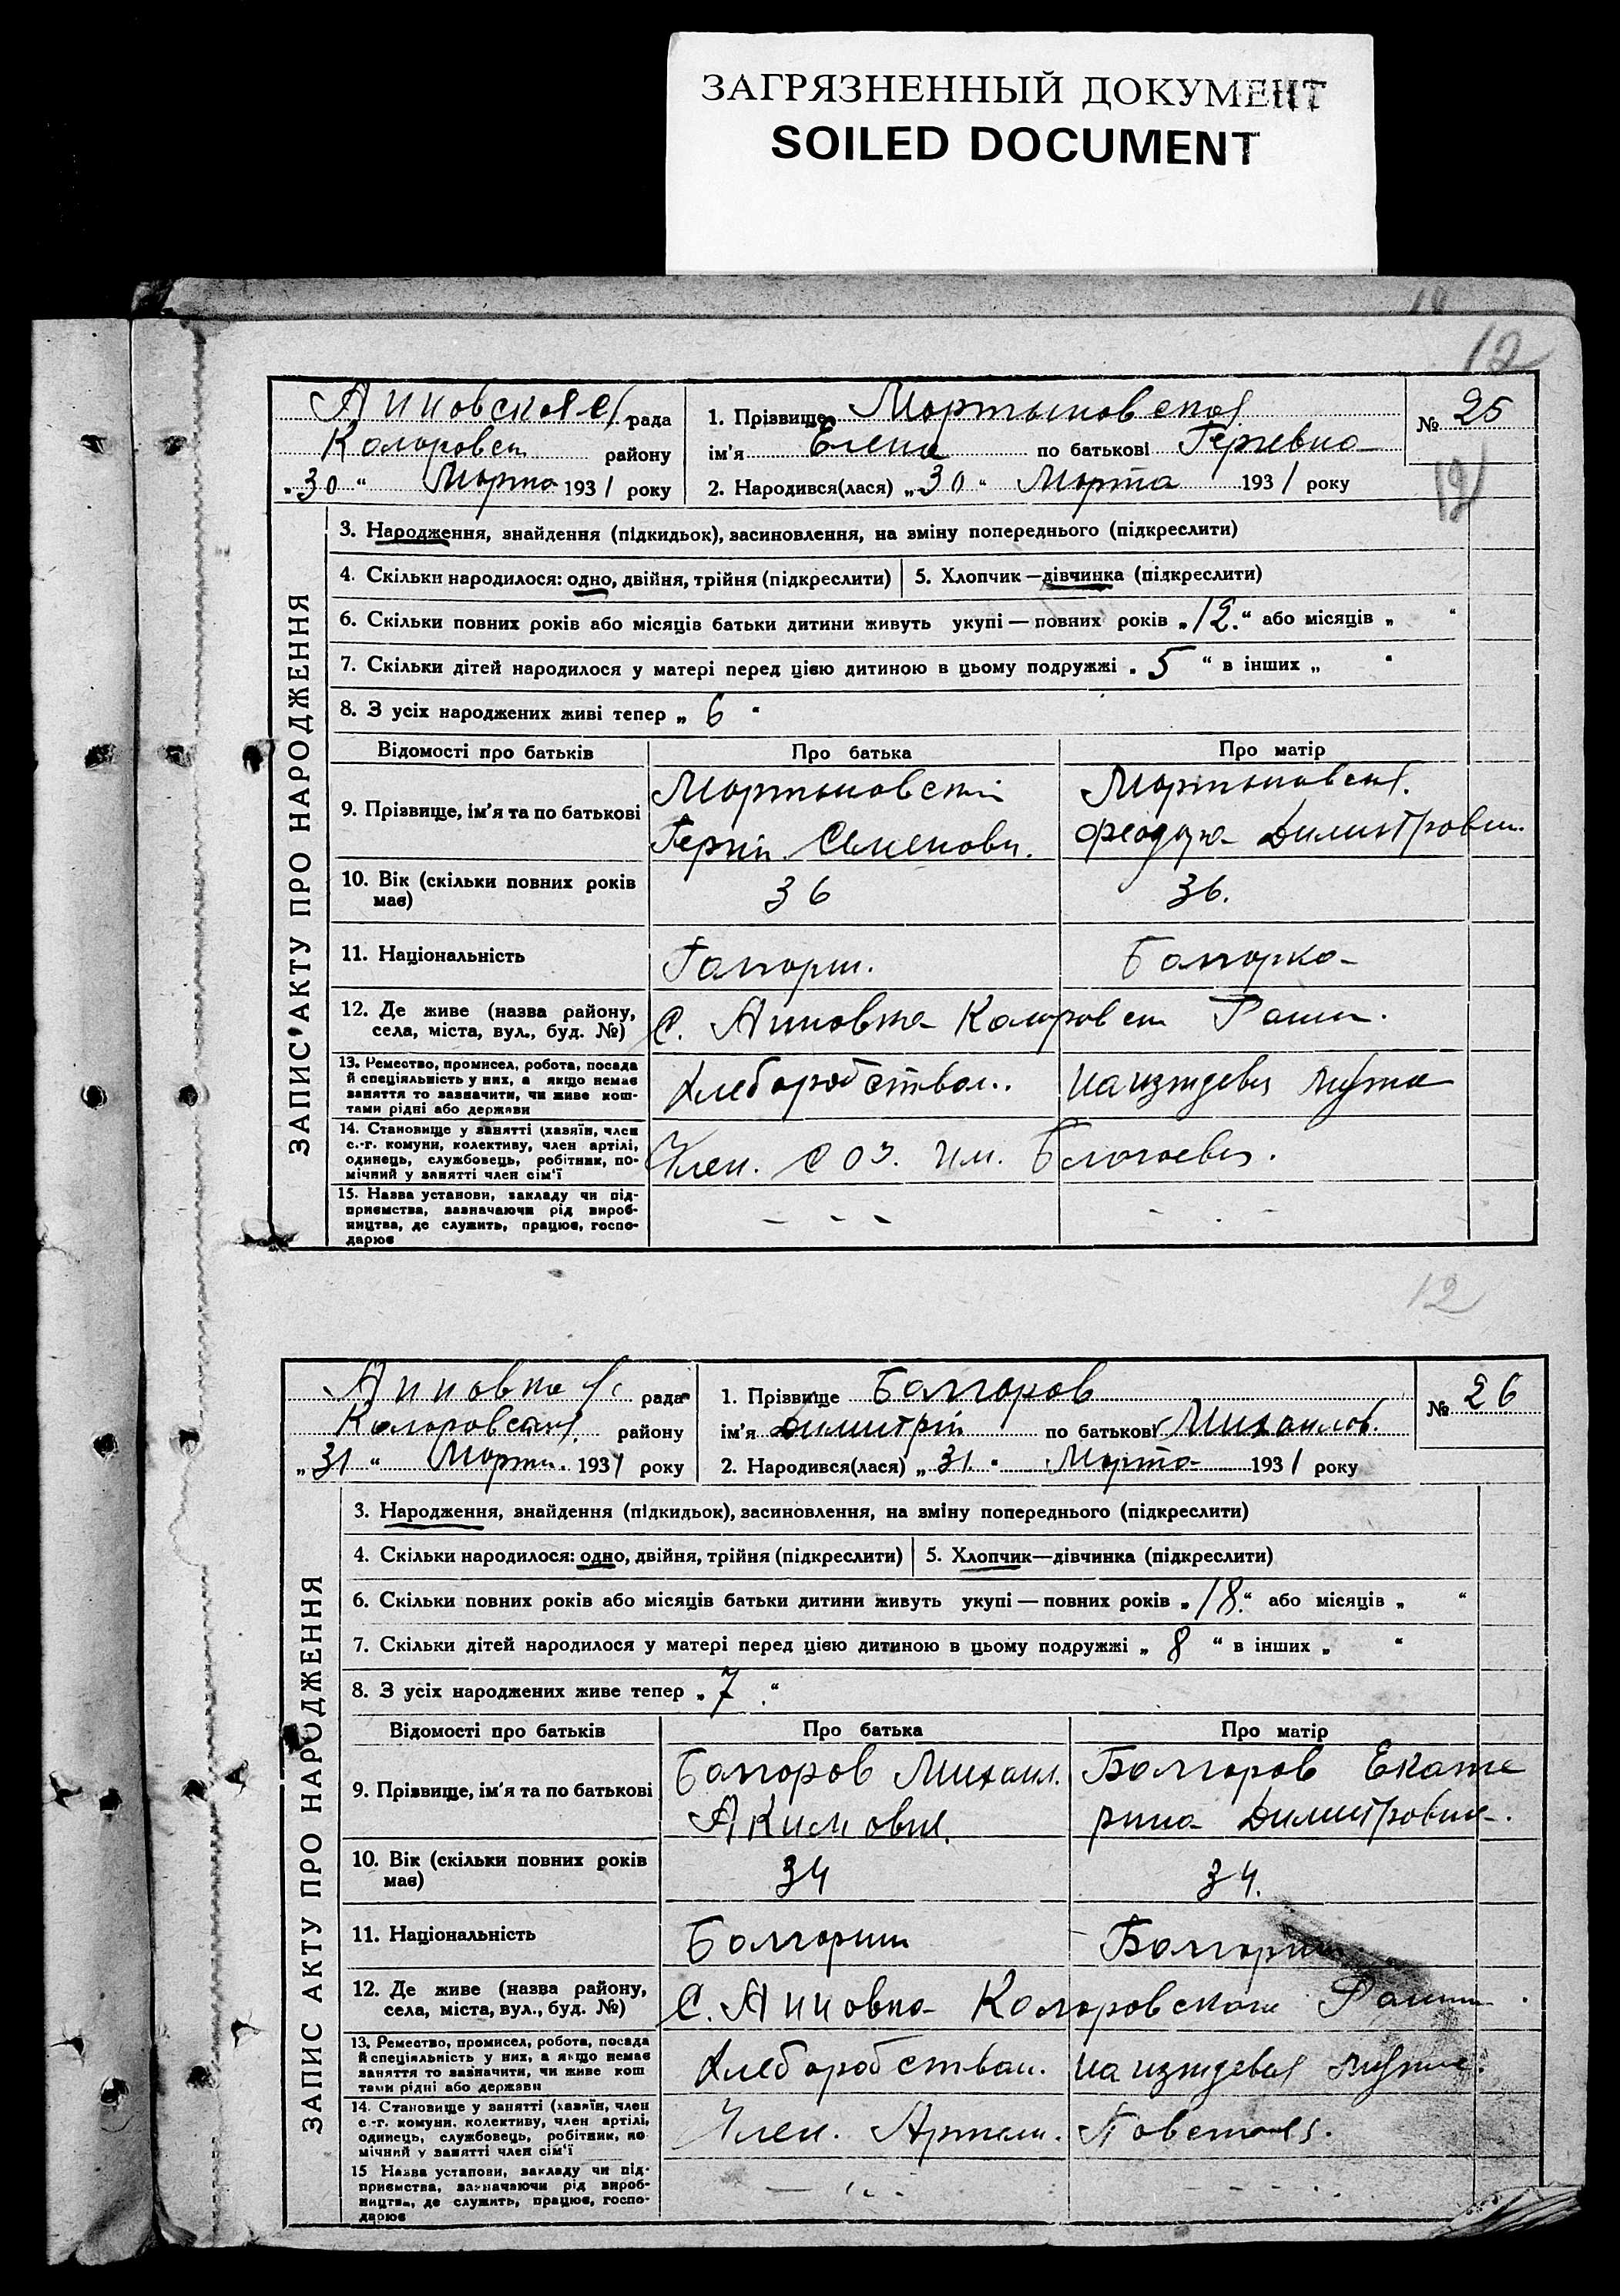 ЗАГРЯЗНЕННЫЙ ДОКУМЕНТ
SOILED DOCUMENT
12
Анновская с/рада
Коларовск району
„30“ Марта 1931 року
1. Прізвище Мартыновская
ім'я Елена по батькові
2. Народився(лася) „30“ Марта 1931 року
№ 25
12
ЗАПИС АКТУ ПРО НАРОДЖЕННЯ
3. Народження, знайдення (підкидьок), засиновлення, на зміну попереднього (підкреслити)
4. Скільки народилося: одно, двійня, трійня (підкреслити)
5. Хлопчик—дівчинка (підкреслити)
6. Скільки повних років або місяців батьки дитини живуть укупі — повних років „12.“ або місяців „ “
7. Скільки дітей народилося у матері перед цією дитиною в цьому подружжі „5“ в інших „ “
8. З усіх народжених живі тепер „6“
Відомості про батьків
Про батька
Про матір
9. Прізвище, ім'я та по батькові
Мартыновский
Семенович.
Мартыновская.
10. Вік (скільки повних років
має)
36
36.
11. Національність
Болгорка
12. Де живе (назва району,
села, міста, вул., буд. №)
С. Анновка Коларовск Район.
13. Ремество, промисел, робота, посада
й спеціяльність у них, а якщо немає
заняття то зазначити, чи живе кош-
тами рідні або держави
Хлеборобством.
на иждевен мужа
14. Становище у занятті (хазяїн, член
с.-г. комуни, колективу, член артілі,
одинець, службовець, робітник, по-
мічний у занятті член сім'ї
Член. СОЗ. Им. Благоева.
15. Назва установи, закладу чи під-
приємства, зазначаючи рід вироб-
ництва, де служить, працює, госпо-
дарює
- - -
- - -
12
Анновка рада
Коларовская району
„31“ Марта. 1931 року
1. Прізвище Болгоров
ім'я Димитрий по батькові Михаилов.
2. Народився(лася) „31.“ Марта 1931 року
№ 26
ЗАПИС АКТУ ПРО НАРОДЖЕННЯ
3. Народження, знайдення (підкидьок), засиновлення, на зміну попереднього (підкреслити)
4. Скільки народилося: одно, двійня, трійня (підкреслити)
5. Хлопчик—дівчинка (підкреслити)
6. Скільки повних років або місяців батьки дитини живуть укупі — повних років „18.“ або місяців „ “
7. Скільки дітей народилося у матері перед цією дитиною в цьому подружжі „8“ в інших „ “
8. З усіх народжених живе тепер „7.“
Відомості про батьків
Про батька
Про матір
9. Прізвище, ім'я та по батькові
Болгоров Михаил.
Акимович.
Болгоров Екате
рина Димитровна.
10. Вік (скільки повних років
має)
34
34.
11. Національність
Болгорин
Болгорин
12. Де живе (назва району,
села, міста, вул., буд. №)
С. Анновка Коларовского Района.
13. Ремество, промисел, робота, посада
й спеціяльність у них, а якщо немає
заняття то зазначити, чи живе кош
тами рідні або держави
Хлеборобством.
на иждевея мужа.
14. Становище у занятті (хазяїн, член
с.-г. комуни, колективу, член артілі,
одинець, службовець, робітник, по
мічний у занятті член сім'ї
Член. Артели.
15 Назва установи, закладу чи під-
приємства, зазначаючи рід вироб-
ництва, де служить, працює, госпо-
дарює